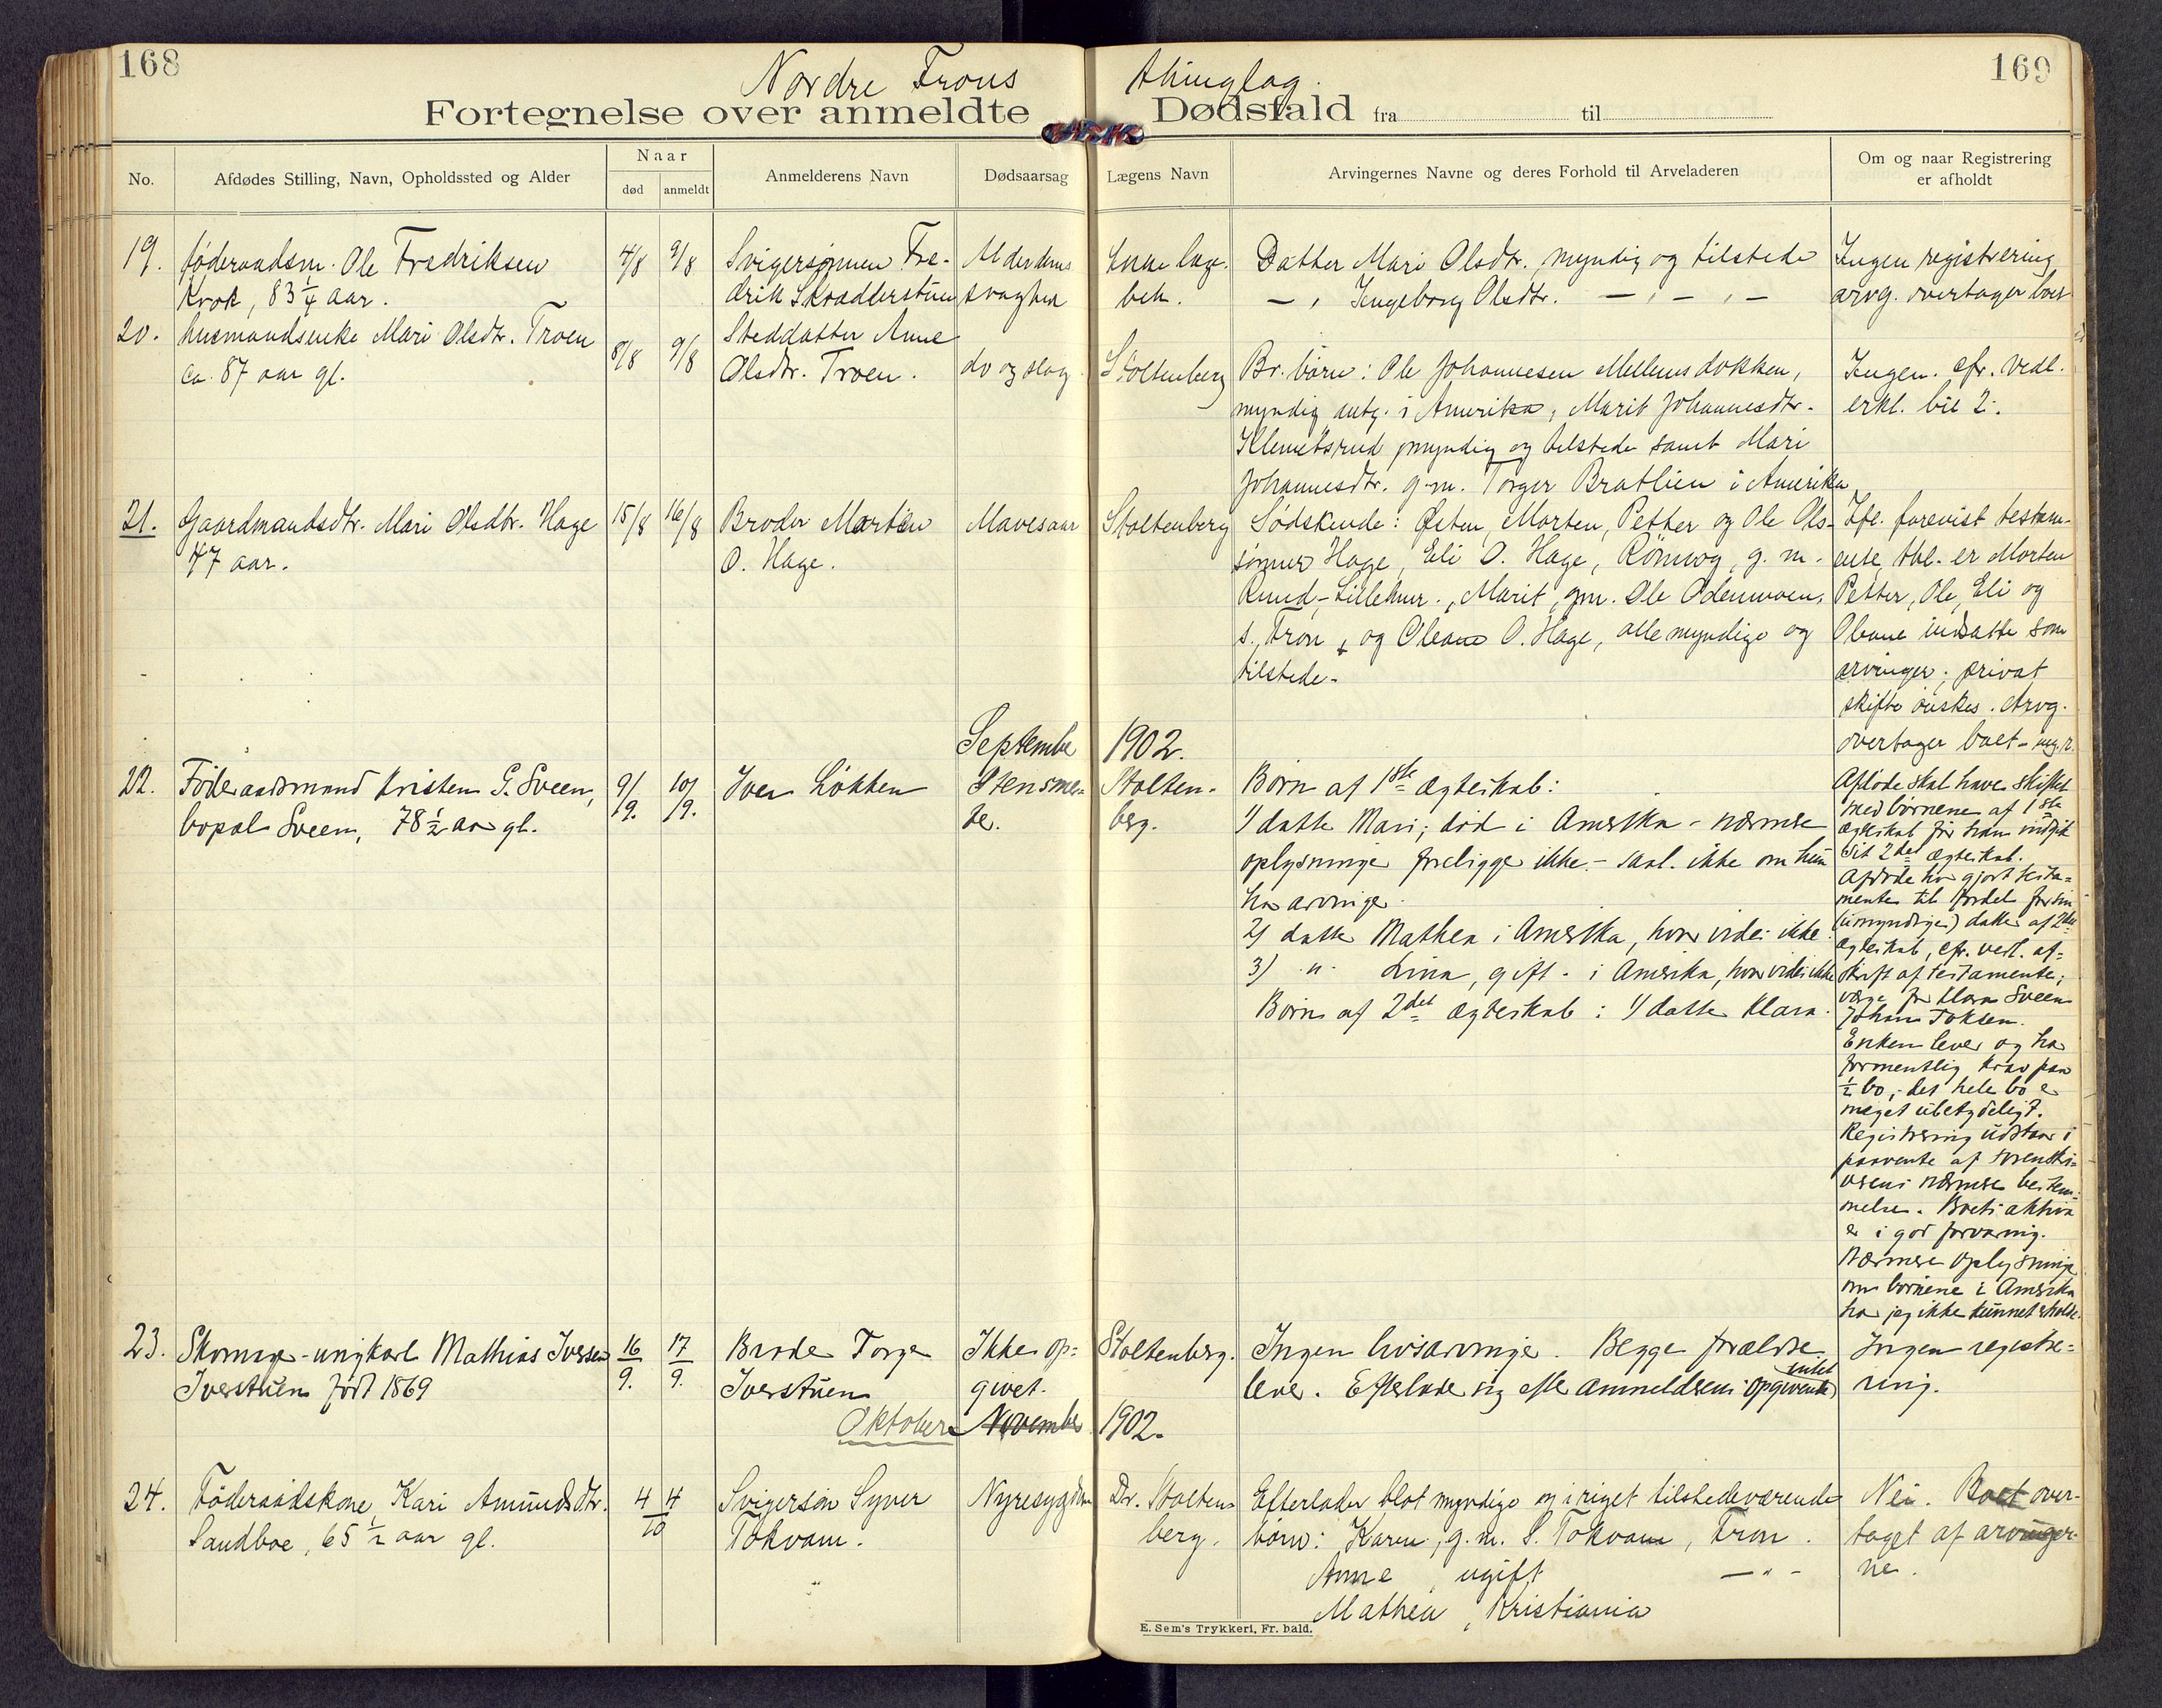 168
169
Nordre Frons thinglag.
Fortegnelse over anmeldte Dødsfald fra til
No.
Afdødes Stilling, Navn, Opholdssted og Alder
Naar
død
anmeldt
Anmelderens Navn
Dødsaarsag
Lægens Navn
Arvingernes Navne og deres Forhold til Arveladeren
Om og naar Registrering
er afholdt
19.
føderaadsm. Ole Fredriksen
Krok, 83 1/4 aar.
4/8
9/8
Svigersønnen Fre-
drik Skradderstuen
Alderdoms
svaghed
læge.
beh.
Datter Mari Olsdtr. myndig og tilstede
— " Ingeborg Olsdtr. — " — " —
Ingen registrering
arvg. overtager boet
20.
husmandsenke Mari Olsdtr. Troen
ca. 87 aar gl.
8/8
9/8
Steddatter Anne
Olsdtr. Troen.
do og slag
Stoltenberg
Br. børn: Ole Johannesen Mellemsdokken,
myndig antg. i Amerika, Marit Johannesdtr.
Klemetsrud myndig og tilstede samt Mari
Johannesdtr. g.m. Torger Bratlien i Amerika
Ingen. cfr. vedl.
erkl. bil 2.
21.
Gaardmandsdtr. Mari Olsdtr. Hage
47 aar.
15/8
16/8
Broder Morten
O. Hage.
Mavesaar
Stoltenberg
Sødskende: Østen, Morten, Petter og Ole Ols-
sønner Hage, Eli O. Hage, Rønnog, g. m.
Knud, Lillehmr., Marit, gm. Ole Odenmoen,
s. Fron, og Oleane O. Hage, alle myndige og
tilstede.
Ifl. forevist testam-
ente, tbl. er Morten
Petter, Ole, Eli og
Oleane indsatte som
arvinger; privat
skifte ønskes. Arvg.
overtager boet -
September 1902.
22.
Føderaadsmand Kristen G. Sveen,
bopæl Sveen, 78 1/2 aar gl.
9/9.
10/9.
Iver Løkken
Stensme-
te.
Stolten-
berg.
Børn af 1ste ægteskab:
1) datter Mari; død i Amerika - nærmere
oplysninger foreligger ikke. - saal. ikke om hun
har arvinger.
2) datter Mathea i Amerika, hvor vides ikke
3) " Lina, gift - i Amerika, hvor vides ikke
Børn af 2det ægteskab: 1) datter Klara.
Afdøde skal have skiftet
med børnene af 1ste
ægteskab før han indgik
sit 2det ægteskab.
Afdøde har gjort testa-
mente til fordel for sin
(umyndige) datter af 2det
ægteskab, cfr. vedl. af-
skrift af testamente;
værge for Klara Sveen
Johans Toksen.
Enken lever og har
formentlig krav paa
1/2 bo; det hele bo er
meget ubetydeligt.
Registrering udstaar i
paavente af sorenskri-
verens nærmere bestem-
melse. Boets aktiva
er i god forvaring.
Nærmere oplysninger
om børnene i Amerika
har jeg ikke kunnet erholde.
23.
Skomager-ungkarl Mathias Iversen
Iverstuen født 1869
16/9.
17/9.
Broder Torger
Iverstuen
Ikke op-
givet.
Stoltenberg.
Ingen livsarvinger. Begge forældre
lever. Efterlader sig efter anmelderens opgivende intet
Ingen registre-
ring.
Oktober November 1902.
24.
Føderaadskone Kari Amundsdtr.
Sandboe, 65 1/2 aar gl.
4/10
4/10
Svigersøn Syver
Tokvam.
Nyresygdom
Dr. Stolten-
berg.
Efterlader blot myndige og i riget tilstedeværende
børn: Karen, g.m. S. Tokvam, Fron.
Anne, ugift — " —
Mathea, Kristiania
Nei. Boet over-
taget af arvinger-
ne.
E. Sem's Trykkeri, Fr. hald.